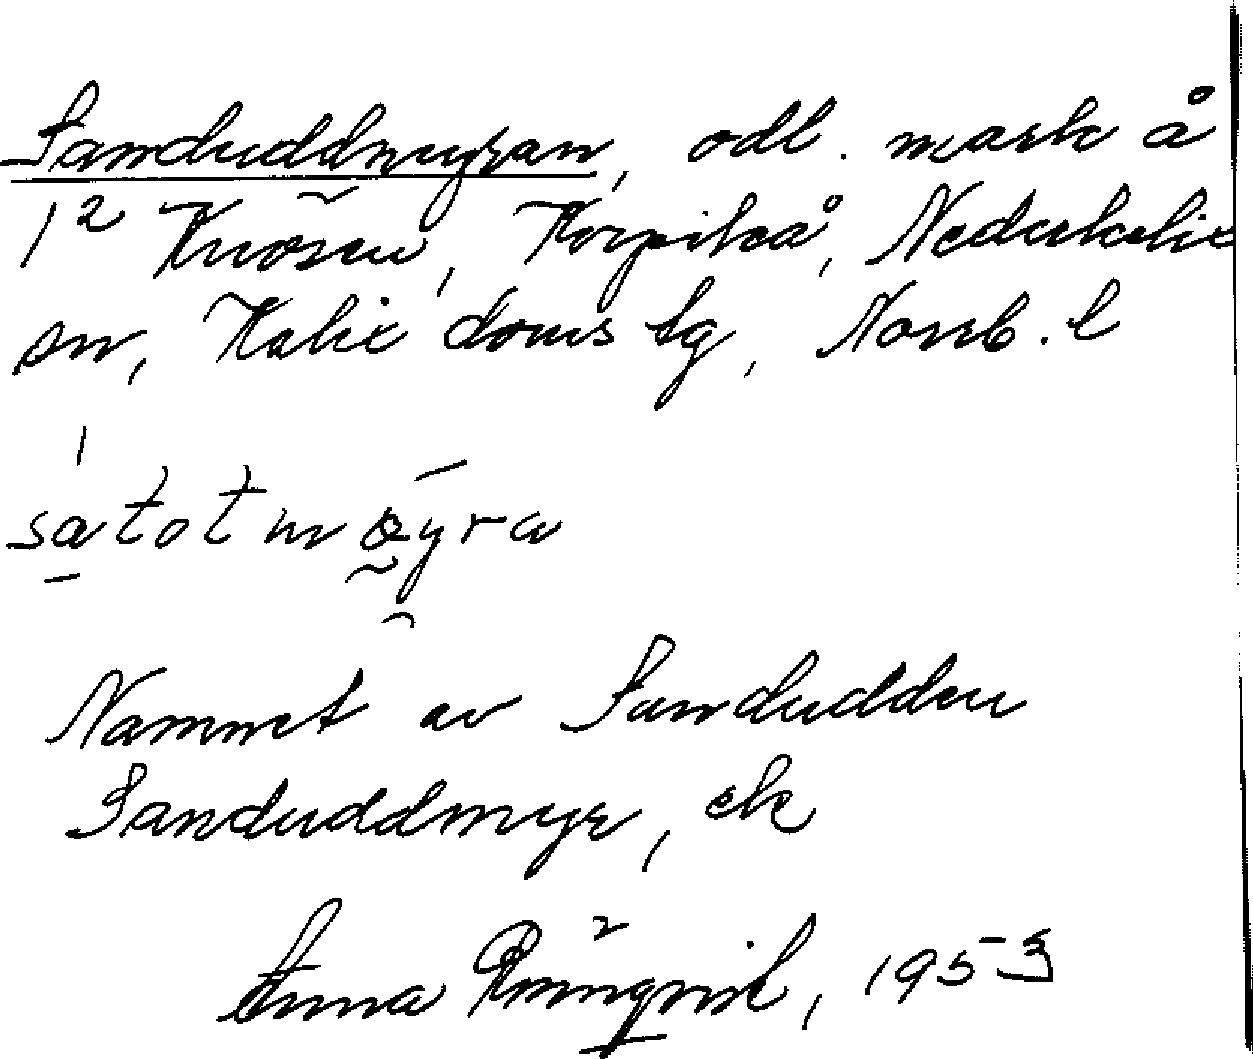 Sanduddmyran, odl. mark å
1² Knösen, Korpikå, Nederkalix
sn, Kalix doms lg, Norrb. l
Namnet av Sandudden
Sanduddmyr, ek
Anna Rönnqvist, 1953